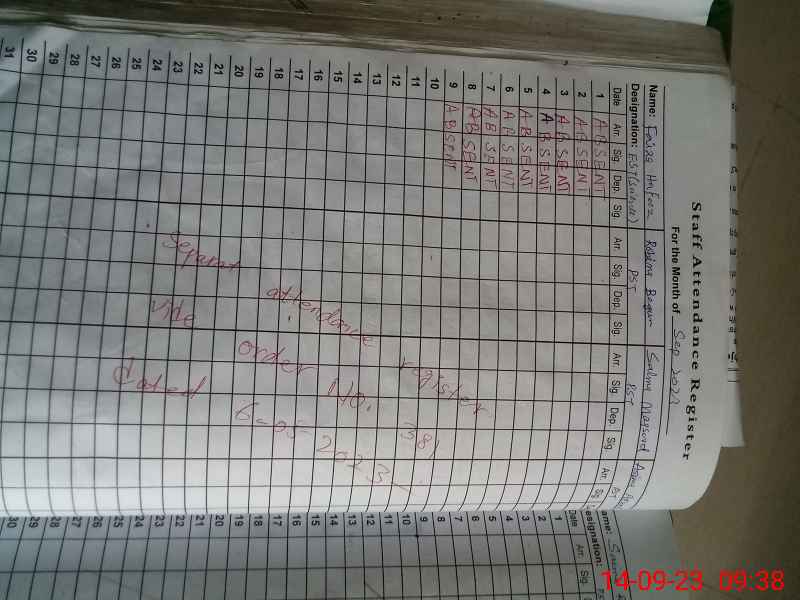 Staff Attendance Register
For the Month of Sep 2023
Name: Faiza Hafeez Robina Begum Salma Maqsood
Designation: EST (science) PST PST
Date Arr. Sig. Dep. Sig. Arr. Sig. Dep. Sig. Arr. Sig. Dep. Sig. Arr. Sig.
1 ABSENT
2 ABSENT
3 ABSENT
4 ABSENT
5 ABSENT
6 ABSENT
7 ABSENT
8 ABSENT
9 ABSENT
10
11
12
13
14
15
16
17
18
19
20
21
22
23
24
25
26
27
28
29
30
31
Separat attendance register
vide order No. 381
Dated 6-05-2023
ame:
Designation:
Date Arr. Sig.
1
2
3
4
5
6
7
8
9
10
11
12
13
14
15
16
17
18
19
20
21
22
23
24
25
26
27
28
29
30
14-09-23 09:38